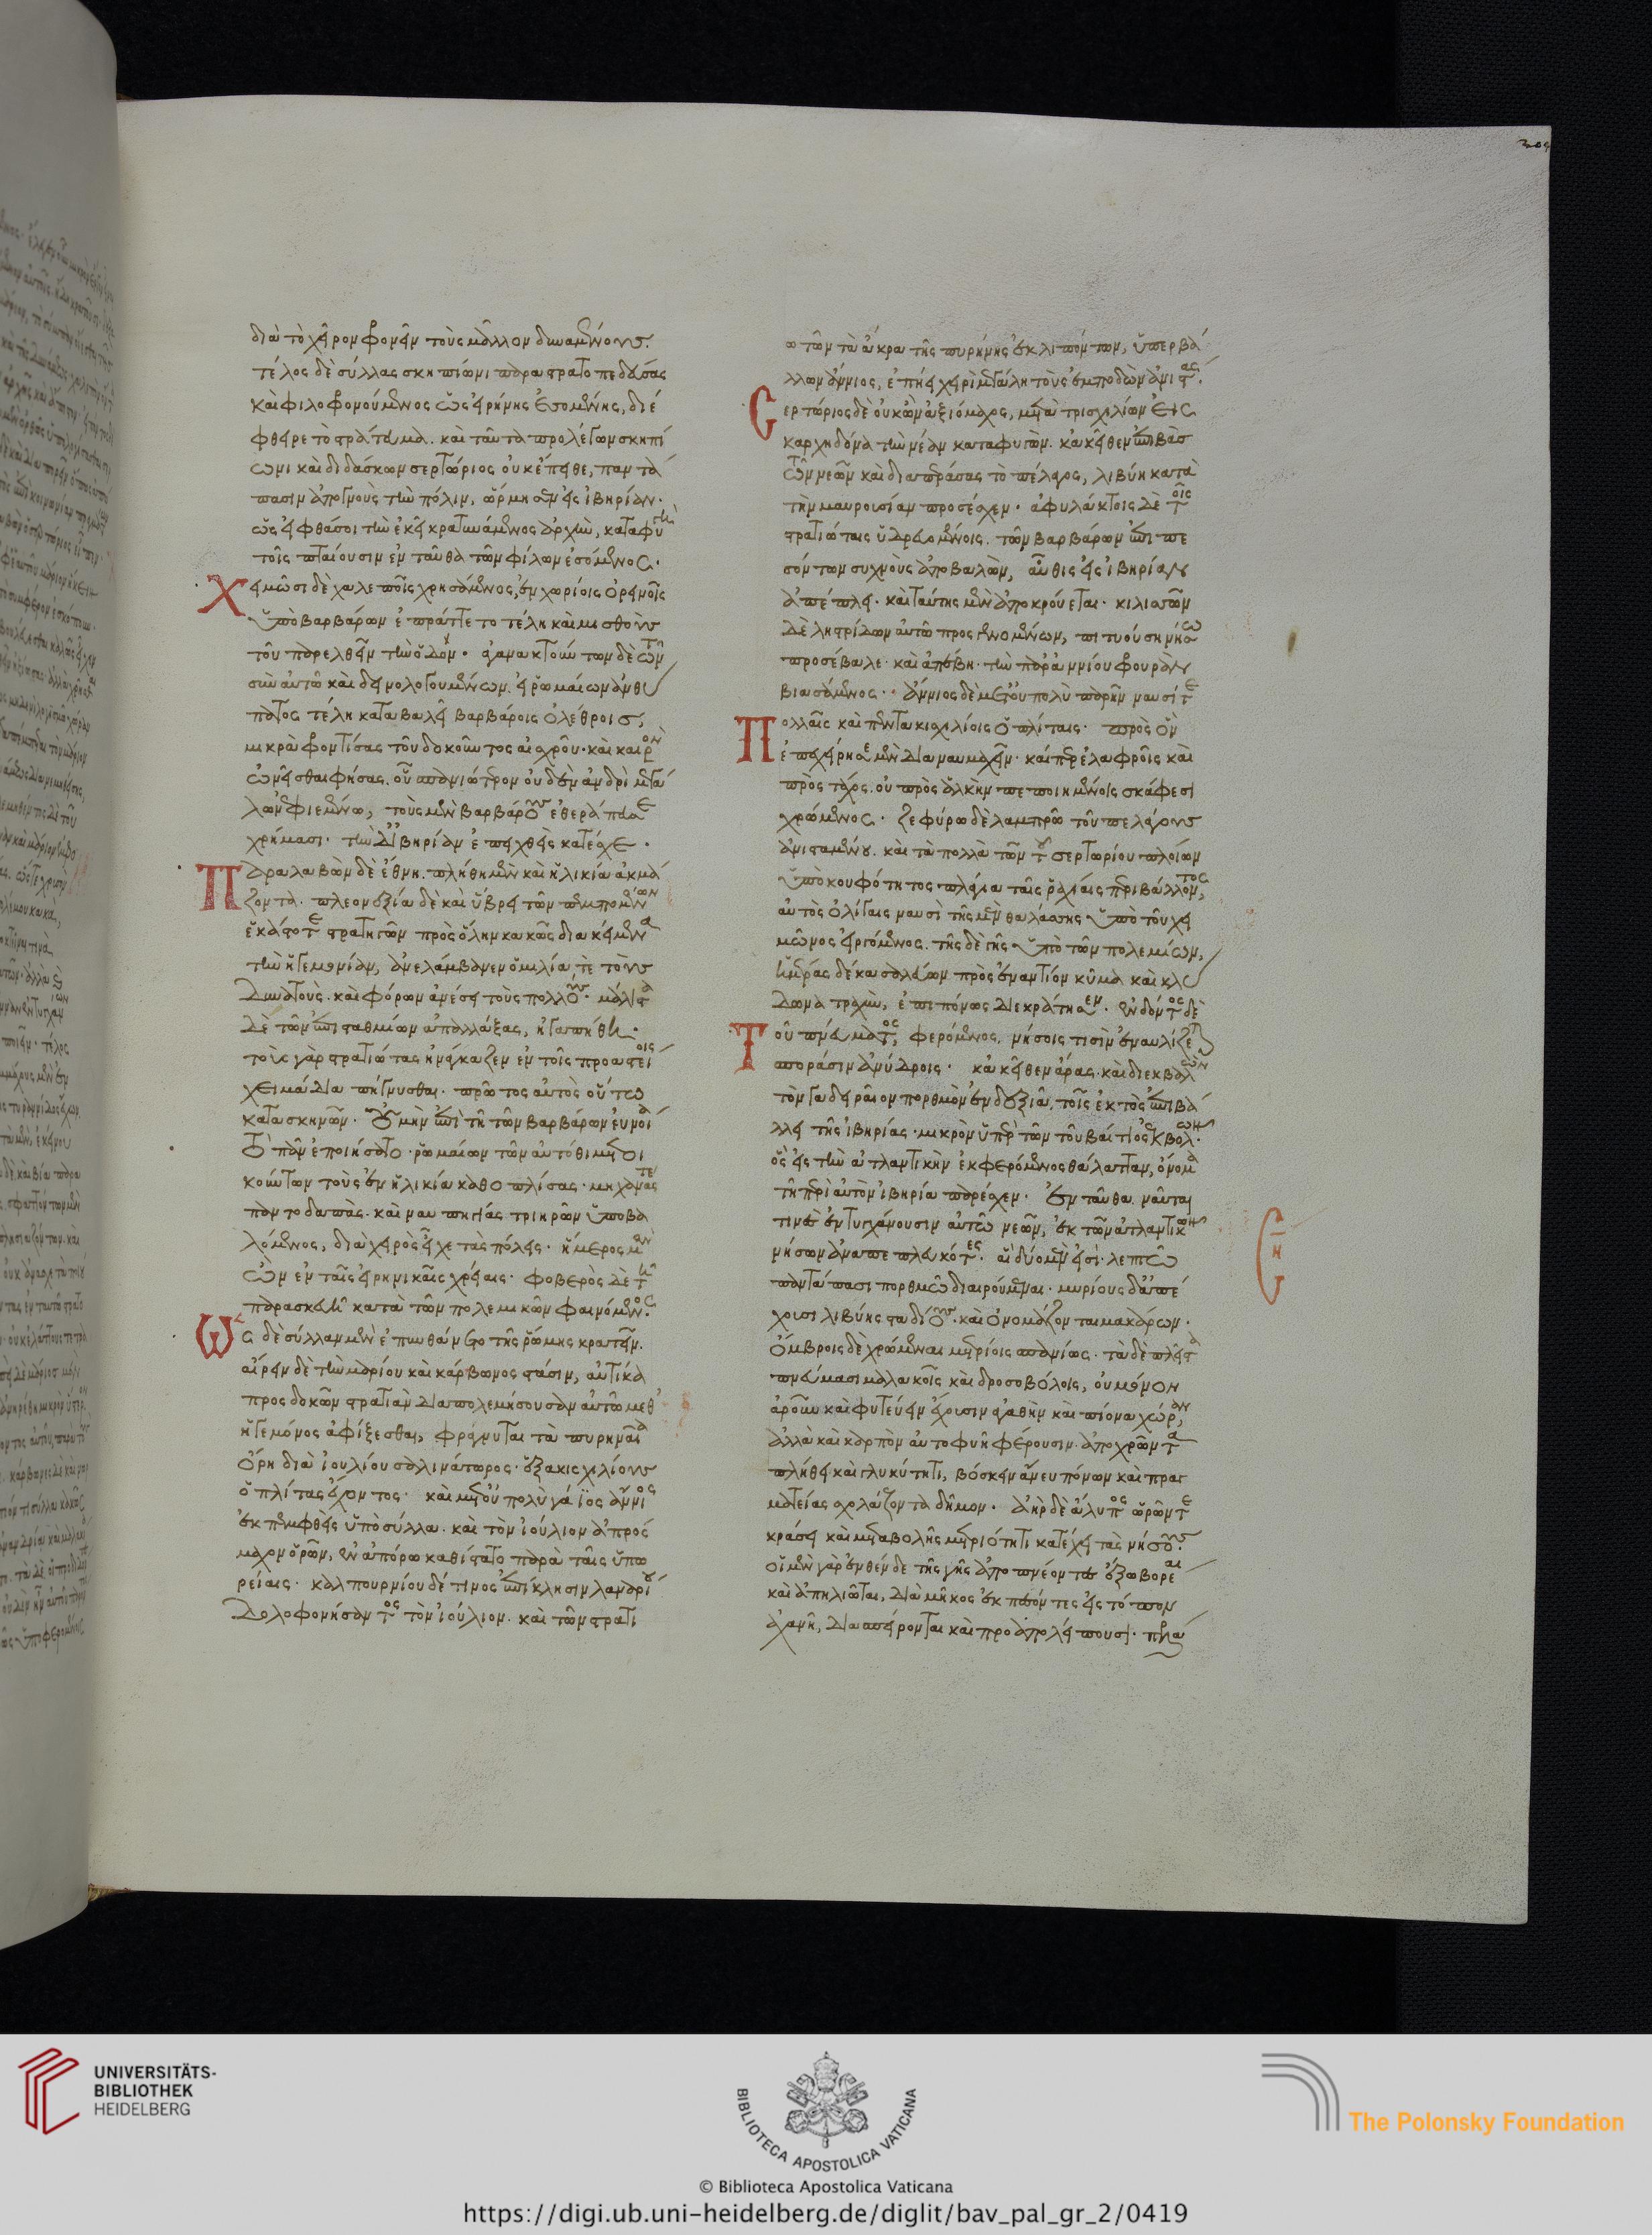 διὰ τὸ χεῖρον φρονεῖν τοὺς μᾶλλον δυναμένους.
τέλος δὲ σύλλας σκηπίωνι παραστρατοπεδεύσας
καὶ φιλοφρονούμενος ὡς εἰρήνης ἐσομένης, διέ
φθειρε τὸ στράτευμα. καὶ ταῦτα προλέγων σκηπί
ωνι καὶ διδάσκων σερτώριος οὐκ ἔπειθε, παντά
πασιν ἀπογνοὺς τὴν πόλιν, ὥρμησεν εἰς ἰβηρίαν.
ὡς εἰ φθάσοι τὴν ἐκεῖ κρατυνάμενος ἀρχὴν, καταφυγὴ
τοῖς πταίουσιν ἐνταῦθα τῶν φίλων ἐσόμενος.
Χειμῶσι δὲ χαλεποῖς χρησάμενος, ἐν χωρίοις ὀρεινοῖς
ὑπὸ βαρβάρων ἐπράττετο τέλη καὶ μισθοὺς
τοῦ παρελθεῖν τὴν ὁδόν. ἀγανακτούντων δὲ τῶν
σὺν αὐτῶ καὶ δεινολογουμένων. εἰ ῥωμαίων ἀνθύ
πατος τέλη καταβαλεῖ βαρβάροις ὀλέθροις,
μικρὰ φροντίσας τοῦ δοκοῦντος αἰσχροῦ. καὶ καιρὸν
ὠνεῖσθαι φήσας. οὗ σπανιώτερον οὐδὲν ἀνδρὶ μεγά
λων ἐφιεμένω, τοὺς μὲν βαρβάρους ἐθεράπευσε
χρήμασι. τὴν δ' ἰβηρίαν ἐπειχθεὶς κατέσχε.
Παραλαβὼν δὲ ἔθνη. πλήθει μὲν καὶ ἡλικία ἀκμά
ζοντα. πλεονεξία δὲ καὶ ὕβρει τῶν πεμπομένων
ἑκάστοτε στρατηγῶν πρὸς ὅλην κακῶς διακείμενα
τὴν ἡγεμονίαν, ἀνελάμβανεν ὁμιλία, τὲ τοὺς
δυνατοὺς. καὶ φόρων ἀνέσει τοὺς πολλούς. μάλιστα
δὲ τῶν ἐπισταθμίων ἀπαλλάξας, ἠγαπήθη.
τοὺς γὰρ στρατιώτας ἠνάγκαζεν ἐν τοῖς προαστείοις
χειμάδια πήγνυσθαι. πρῶτος αὐτὸς οὕτω
κατασκηνῶν. οὐ μὴν ἐπὶ τῆ τῶν βαρβάρων εὐνοία
τὸ πᾶν ἐποιήσατο. ῥωμαίων τῶν αὐτόθι μετοι
κούντων τοὺς ἐν ἡλικία καθοπλίσας. μηχανάς τε
παντοδαπὰς. καὶ ναυπηγίας τριηρῶν ὑποβα
λόμενος, διὰ χειρὸς εἶχε τὰς πόλεις. ἥμερος μὲν
ὢν ἐν ταῖς εἰρηνικαῖς χρείαις. φοβερὸς δὲ τῆ
παρασκευῆ κατὰ τῶν πολεμικῶν φαινόμενος.
Ὡς δὲ σύλλαν μὲν ἐπυνθάνετο τῆς ῥώμης κρατεῖν.
αἴρειν δὲ τὴν μαρίου καὶ κάρβωνος στάσιν, αὐτίκα
προσδοκῶν στρατιὰν διαπολεμήσουσαν αὐτῶ μεθ'
ἡγεμόνος ἀφίξεσθαι, φράγνυται τὰ πυρηναῖα
ὄρη διὰ ἰουλίου σαλινάτωρος. ἑξακισχιλίους
ὁπλίτας ἔχοντος. καὶ μετοὐπολὺ γάϊος ἄννιος
ἐκπεμφθεὶς ὑπὸ σύλλα. καὶ τὸν ἰούλιον ἀπρόσ
μαχον ὁρῶν, ἐν ἀπόρω καθίστατο παρὰ ταῖς ὑπω
ρείαις. καλπουρνίου δέ τινος ἐπίκλησιν λαναρίου
δολοφονήσαντος τὸν ἰούλιον. καὶ τῶν στρατι
ωτῶν τὰ ἄκρα τῆς πυρήνης ἐκλιπόντων, ὑπερβά
λλων ἄννιος, ἐπήει χειρὶ μεγάλη τοὺς ἐμποδὼν ἀνιστάς.
Σερτώριος δὲ οὐκ ὢν ἀξιόμαχος, μετὰ τρισχιλίων εἰς
καρχηδόνα τὴν νέαν καταφυγὼν. κἀκεῖθεν ἐπιβὰς
τῶν νεῶν καὶ διαπεράσας τὸ πέλαγος, λιβύη κατὰ
τὴν μαυρουσίαν προσέσχεν. ἀφυλάκτοις δὲ τοῖς
στρατιώταις ὑδρευομένοις. τῶν βαρβάρων ἐπιπε
σόντων συχνοὺς ἀποβαλὼν, αὖθις εἰς ἰβηρίαν
ἀπέπλει. καὶ ταύτης μὲν ἀποκρούεται. κιλισσῶν
δὲ ληστρίδων αὐτῶ προσγενομένων, πιτυούση νήσω
προσέβαλε. καὶ ἀπέβη. τὴν παρὰ ἀννίου φρουρὰν
βιασάμενος. ἄννιος δὲ μετοὐπολὺ παρῆν ναυσί τε
Πολλαῖς καὶ πεντακισχιλίοις ὁπλίταις. πρὸς ὃν
ἐπεχείρησε μὲν διαναυμαχεῖν. καίπερ ἐλαφροῖς καὶ
πρὸς τάχος. οὐ πρὸς ἀλκὴν πεποιημένοις σκάφεσι
χρώμενος. ζεφύρω δὲ λαμπρῶ τοῦ πελάγους
ἀνισταμένου. καὶ τὰ πολλὰ τῶν τοῦ σερτωρίου πλοίων
ὑπὸ κουφότητος πλάγια ταῖς ῥαχίαις περιβάλλοντος,
αὐτὸς ὀλίγαις ναυσὶ τῆς μὲν θαλάσσης ὑπὸ τοῦ χει
μῶνος εἰργόμενος. τῆς δὲ γῆς ὑπὸ τῶν πολεμίων,
ἡμέρας δέκα σαλεύων πρὸς ἐναντίον κῦμα καὶ κλύ
δωνα τραχὺν, ἐπιπόνως διεκράτησεν. ἐνδόντος δὲ
Τοῦ πνεύματος, φερόμενος. νήσοις τισὶν ἐναυλίζεται
σποράσιν ἀνύδροις. κἀκεῖθεν ἄρας. καὶ διεκβαλὼν
τὸν γαδειραῖον πορθμὸν ἐν δεξιᾶ, τοῖς ἐκτὸς ἐπιβά
λλει τῆς ἰβηρίας. μικρὸν ὑπὲρ τῶν τοῦ βαίτιος ἐκβολῶν.
ὃς εἰς τὴν ἀτλαντικὴν ἐκφερόμενος θάλατταν, ὄνομα
τῆ περὶ αὐτὸν ἰβηρία παρέσχεν. ἐνταῦθα ναῦταί
τινες ἐντυγχάνουσιν αὐτῶ νεῶν, ἐκ τῶν ἀτλαντικῶν
νήσων ἀναπεπλευκότες. αἳ δύο μέν εἰσὶ. λεπτῶ
παντάπασι πορθμῶ διαιρούμεναι. μυρίους δ' ἀπέ
χουσι λιβύης σταδίους. καὶ ὀνομάζονται μακάρων.
ὄμβροις δὲ χρώμεναι μετρίοις σπανίως. τὰ δὲ πλεῖστα
πνεύμασι μαλακοῖς καὶ δροσοβόλοις, οὐ μόνον
ἀροῦν καὶ φυτεύειν ἔχουσιν ἀγαθὴν καὶ πίονα χώραν,
ἀλλὰ καὶ καρπὸν αὐτοφυῆ φέρουσιν. ἀποχρῶντα
πλήθει καὶ γλυκύτητι, βόσκειν ἄνευ πόνων καὶ πραγ
ματείας σχολάζοντα δῆμον. ἀὴρ δὲ ἄλυπος ὡρῶν τε
κράσει καὶ μεταβολῆς μετριότητι κατέχει τὰς νήσους.
οἱ μὲν γὰρ ἐνθένδε τῆς γῆς ἀποπνέοντες ἔξω βορέαι
καὶ ἀπηλιῶται, διὰ μῆκος ἐκπεσόντες εἰς τόπον
ἀχανῆ, διασπείρονται καὶ προαπολείπουσι. πελά
UNIVERSITÄTS-
BIBLIOTHEK
HEIDELBERG
BIBLIOTECA APOSTOLICA VATICANA
© Biblioteca Apostolica Vaticana
The Polonsky Foundation
https://digi.ub.uni-heidelberg.de/diglit/bav_pal_gr_2/0419